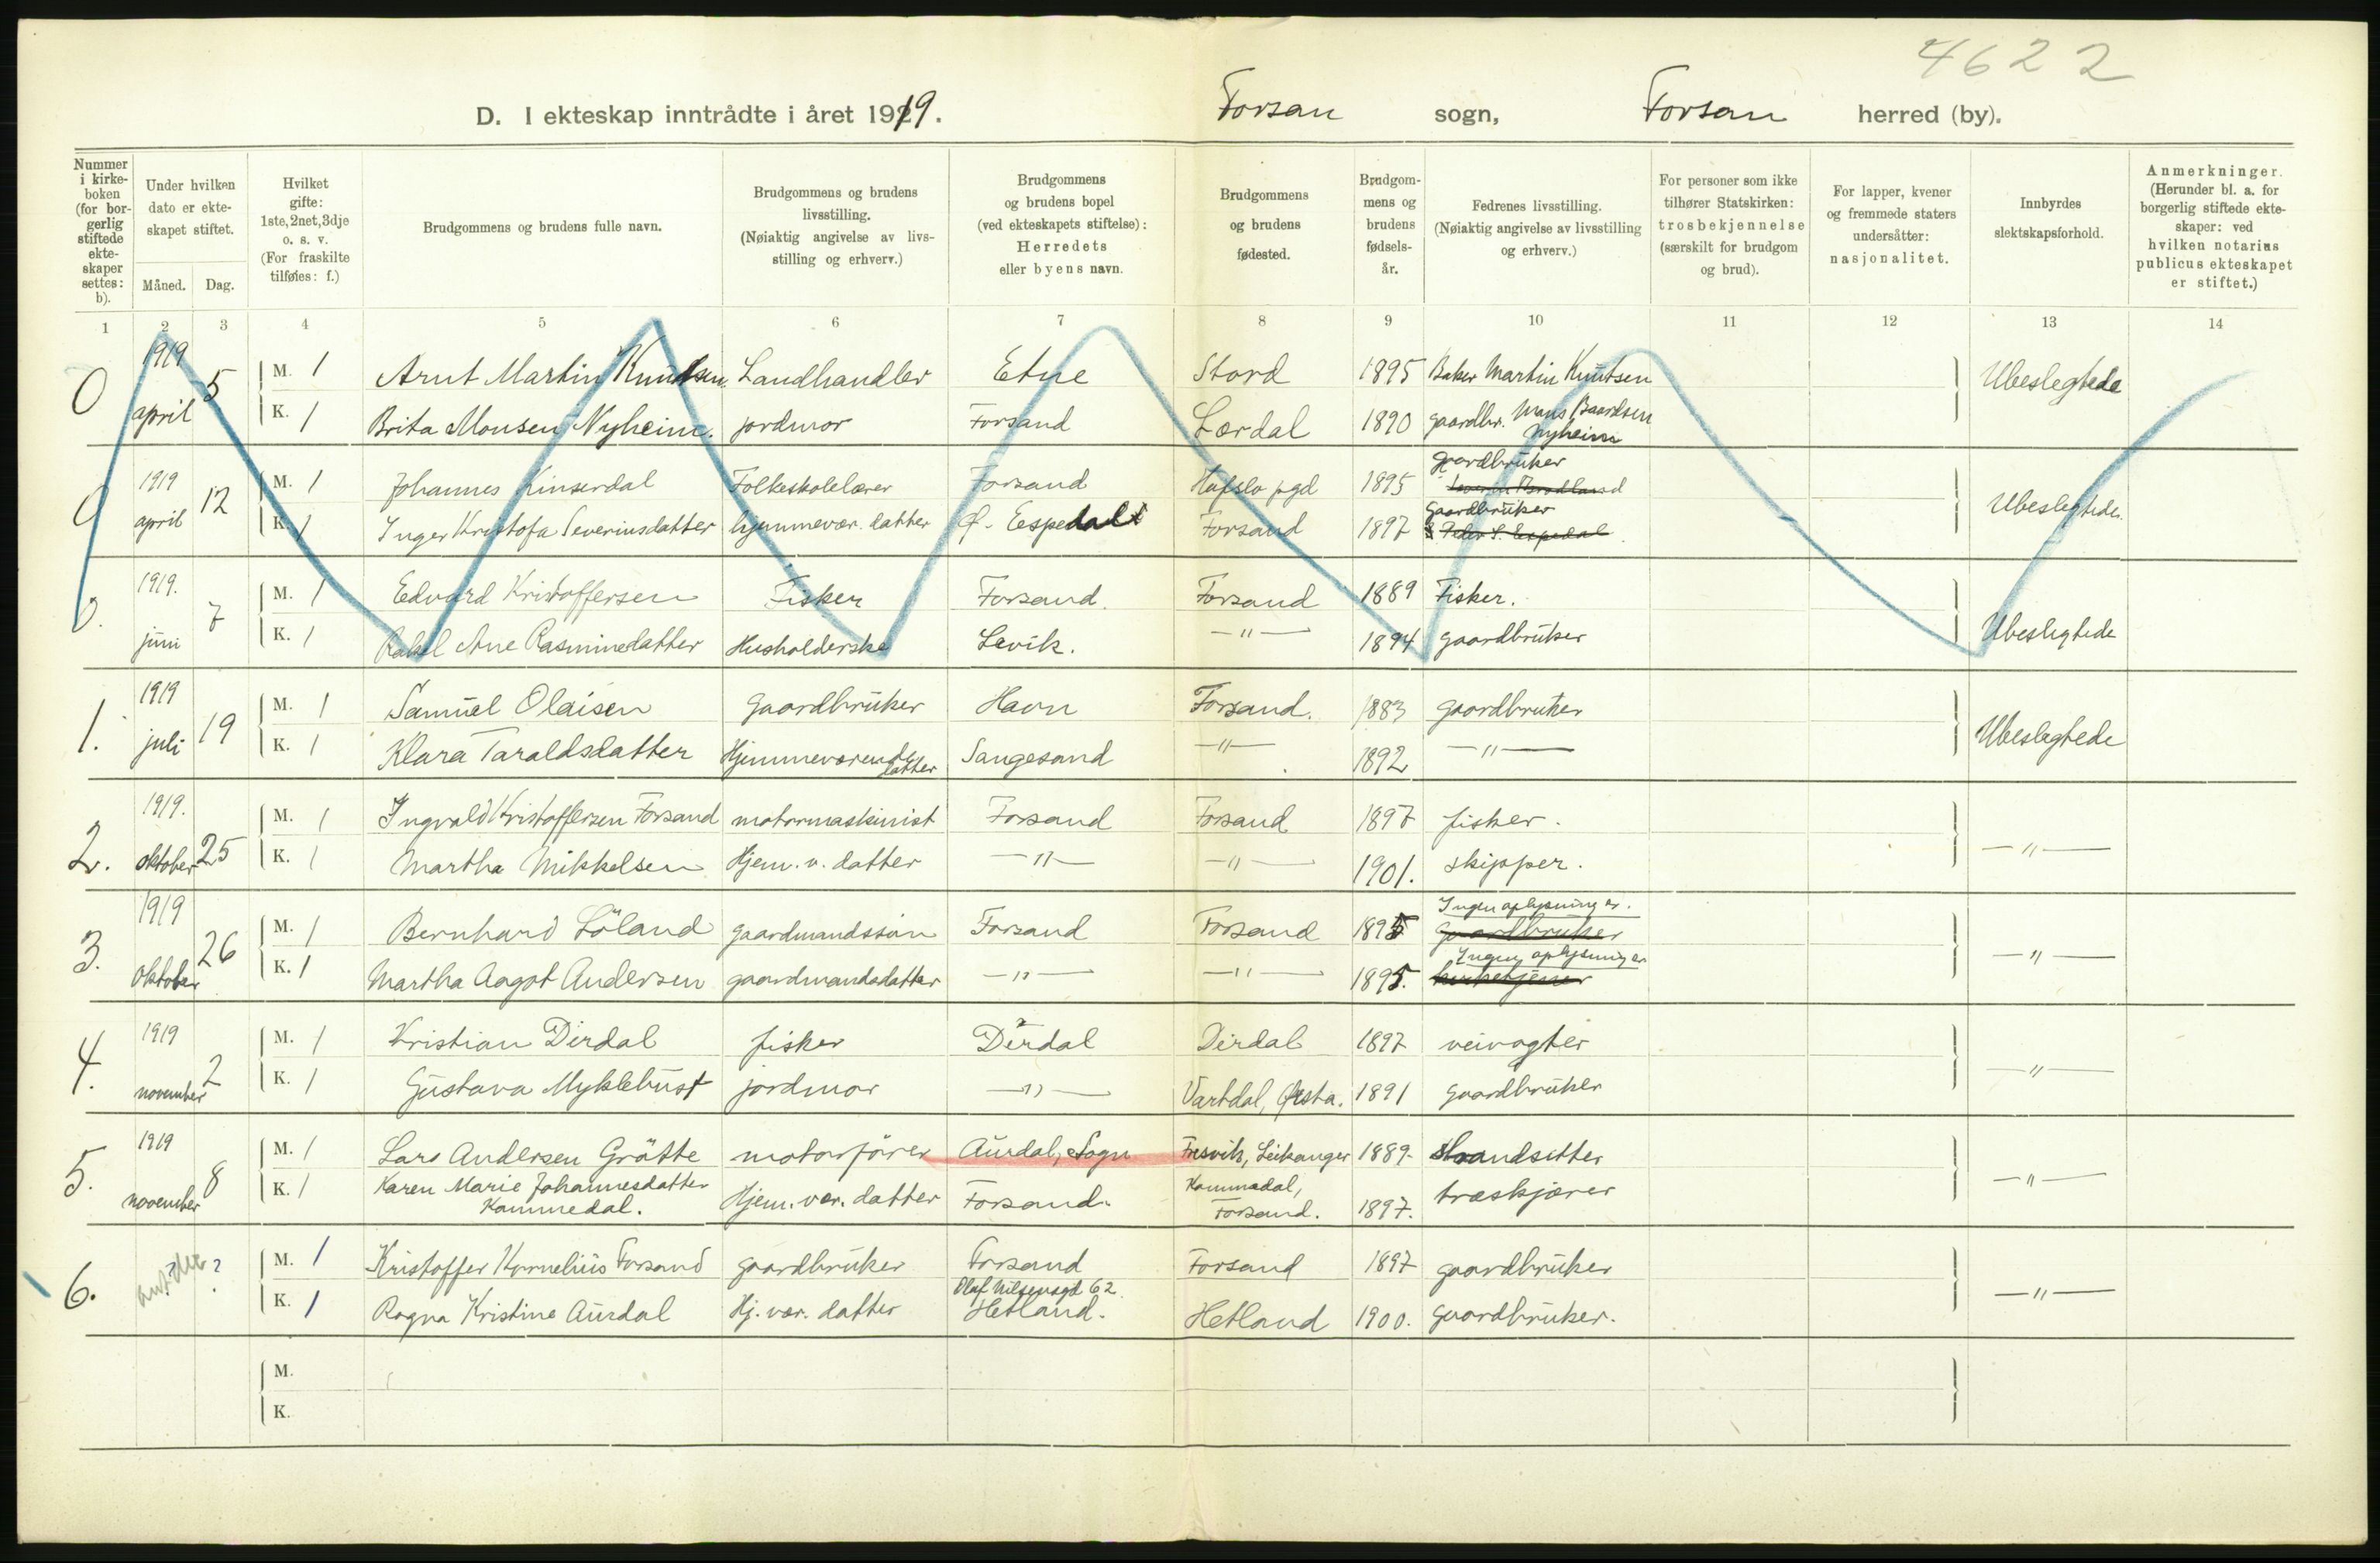 4622
D. I ekteskap inntrådte i året 1919. Forsan sogn, Forsan herred (by).
Nummer i kirkeboken (for borgerlig stiftede ekteskaper settes: b).
Under hvilken dato er ekteskapet stiftet.
Måned. Dag.
Hvilket gifte: 1ste, 2net, 3dje o. s. v. (For fraskilte tilføies: f.)
Brudgommens og brudens fulle navn.
Brudgommens og brudens livsstilling. (Nøiaktig angivelse av livsstilling og erhverv.)
Brudgommens og brudens bopel (ved ekteskapets stiftelse): Herredets eller byens navn.
Brudgommens og brudens fødested.
Brudgommens og brudens fødselsår.
Fedrenes livsstilling. (Nøiaktig angivelse av livsstilling og erhverv.)
For personer som ikke tilhører Statskirken: trosbekjennelse (særskilt for brudgom og brud).
For lapper, kvener og fremmede staters undersåtter: nasjonalitet.
Innbyrdes slektskapsforhold.
Anmerkninger. (Herunder bl. a. for borgerlig stiftede ekteskaper: ved hvilken notarius publicus ekteskapet er stiftet.)
1 2 3 4 5 6 7 8 9 10 11 12 13 14
0 1919 april 5 M. 1 Arnt Martin Knudsen Landhandler Etne Stord 1895 Baker Martin Knutsen Ubeslegtede
K. 1 Brita Monsen Nyheim. jordmor Forsand Lærdal 1890 gaardbr. Mons Baardsen Nyheim
0 1919 april 12 M. 1 Johannes Kinserdal Folkeskolelærer Forsand Hafslo pgd 1895 gaardbruker Ubeslegtede.
K. 1 Inger Kristofa Severinsdatter hjemmevær. datter Ø. Eespedal Forsand 1897 Gaardbruker Peder S. Espedal
0. 1919. juni 7 M. 1 Edvard Kristoffersen Fisker Forsand. Forsand 1889 Fisker. Ubeslegtede
K. 1 Rakel Ane Rasminedatter Husholderske Levik. —"— 1894 gaardbruker
1. 1919 juli 19 M. 1 Samuel Olaisen gaardbruker Havn Forsand. 1883 gaardbruker Ubeslegtede
K. 1 Klara Taraldsdatter Hjemmeværende datter Sangesand —"— 1892 —"—
2. 1919. oktober 25 M. 1 Ingvald Kristoffersen Forsand motormaskinist Forsand Forsand 1897 fisker. —"—
K. 1 Martha Mikkelsen Hjem. v. datter —"— —"— 1901. skipper.
3. 1919 Oktober 26 M. 1 Bernhard Löland gaardmandssön Forsand Forsand 1895 Ingen oplysninger. Gaardbruker —"—
K. 1 Martha Aagot Andersen gaardmandsdatter —"— —"— 1895. Ingen oplysninger
4. 1919 november 2 M. 1 Kristian Dirdal fisker Dirdal Dirdal 1897 veivogter —"—
K. 1 Gustava Myklebust jordmor —"— Vartdal, Ørsta. 1891 gaardbruker
5. 1919 november 8 M. 1 Lars Andersen Gråtte motorförer Aurdal, Sogn Fresvik, Leikanger 1889. strandsitter —"—
K. 1 Karen Marie Johannesdatter Kommedal. Hjem. vær. datter Forsand. Kommedal, Forsand. 1897. træskjærer
6. ? ? M. 1 Kristoffer Kornelius Forsand gaardbruker Forsand Forsand 1897 gaardbruker —"—
K. 1 Ragna Kristine Aurdal Hj. vær. datter Olaf Nilsensgt 62. Hetland. Hetland 1900. gaardbruker.
M.
K.